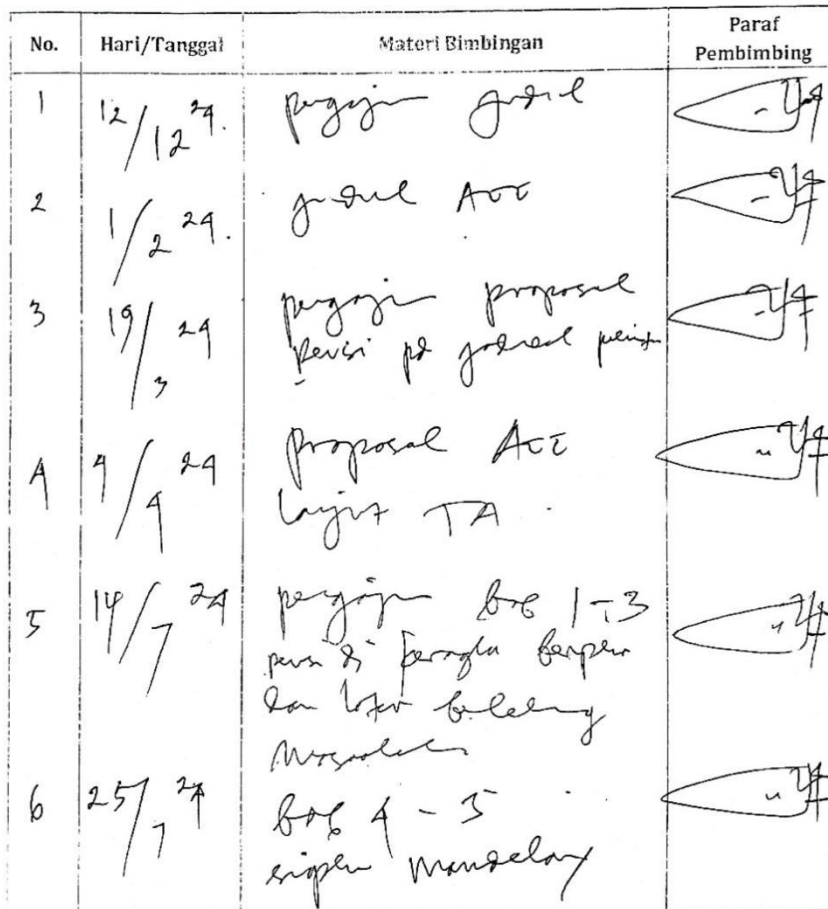 No. Hari/Tanggal Materi Bimbingan Paraf Pembimbing
1 12/12 24. pengajuan judul
2 1/2 24. judul ACC
3 19/3 24 pengajuan proposal
revisi pd jadwal
4 4/4 24 proposal ACC
lanjut TA.
5 14/7 24 pengajuan bab 1-3
revisi di kerangka berpikir
dan latar belakang
masalah
6 25/7 24 bab 4-5